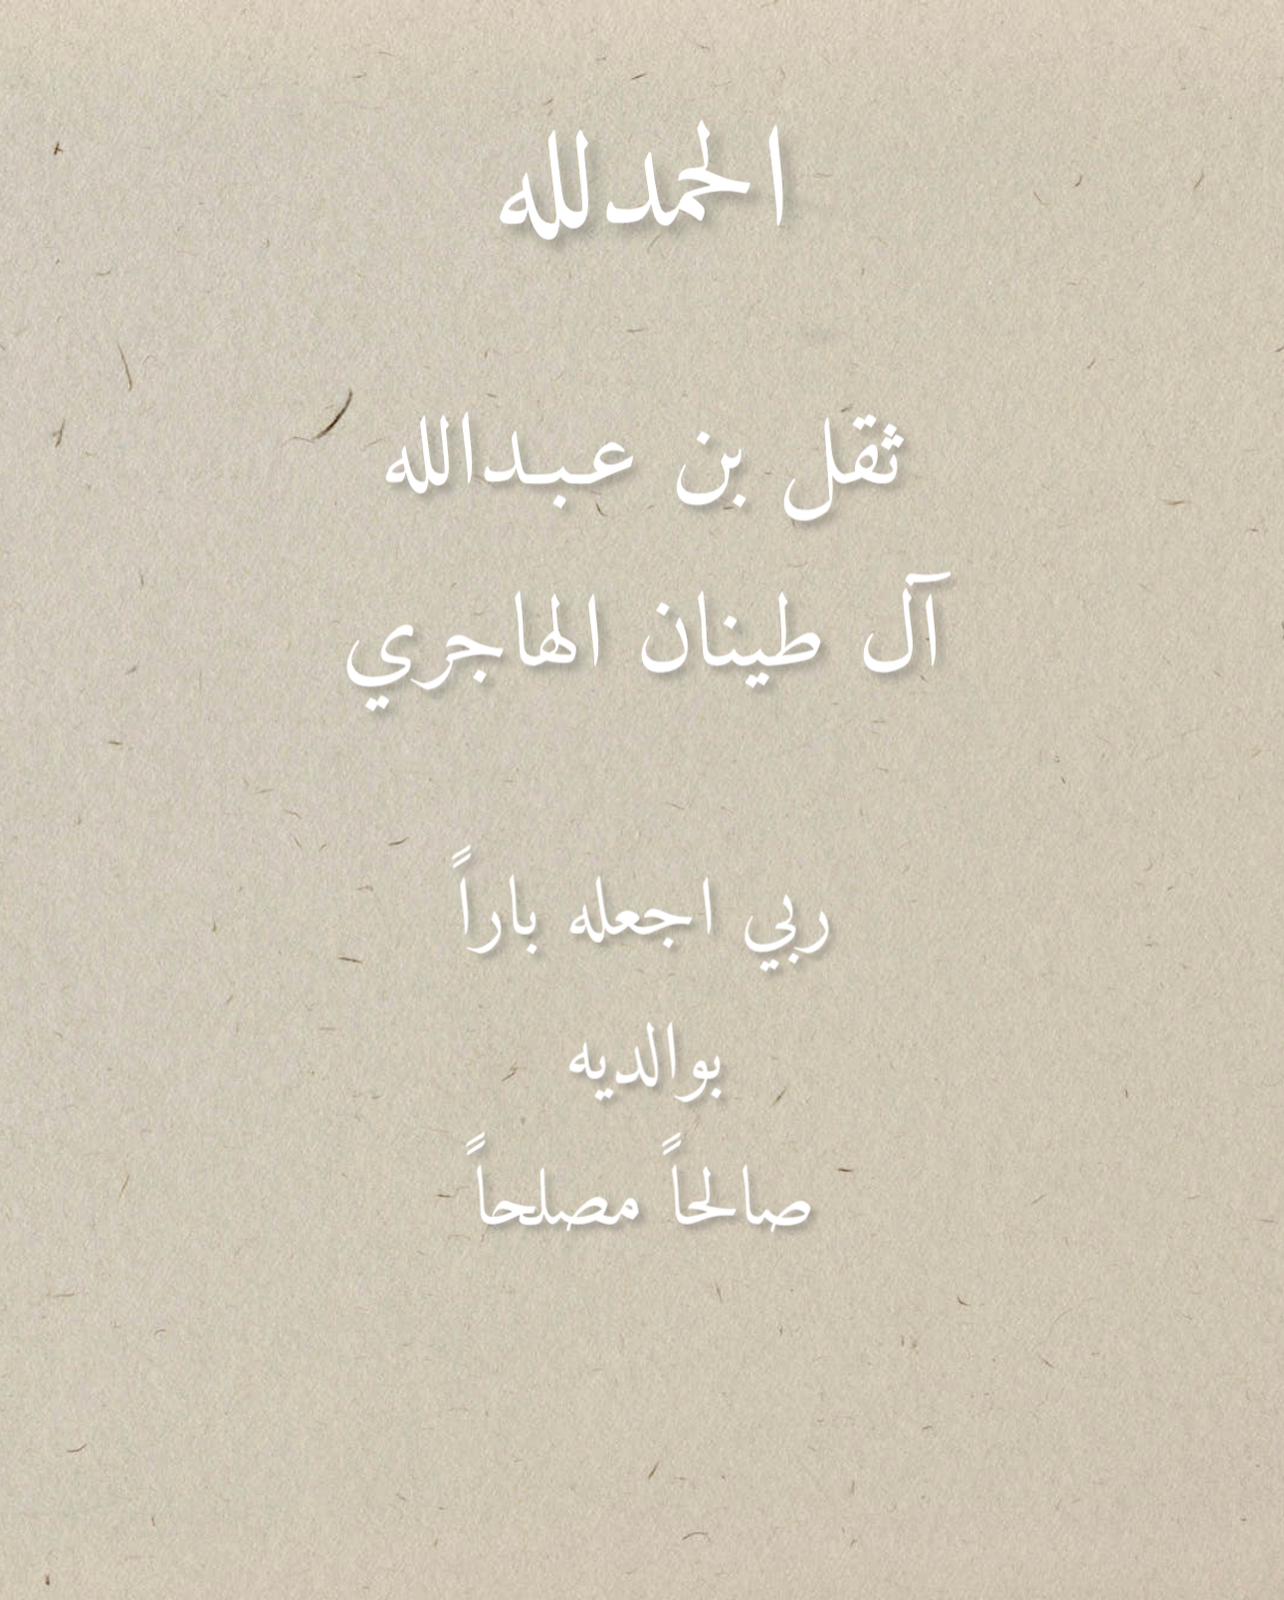 الحمدلله
ثقل بن عبدالله
آل طينان الهاجري
ربي اجعله باراً
بوالديه
صالحاً مصلحاً